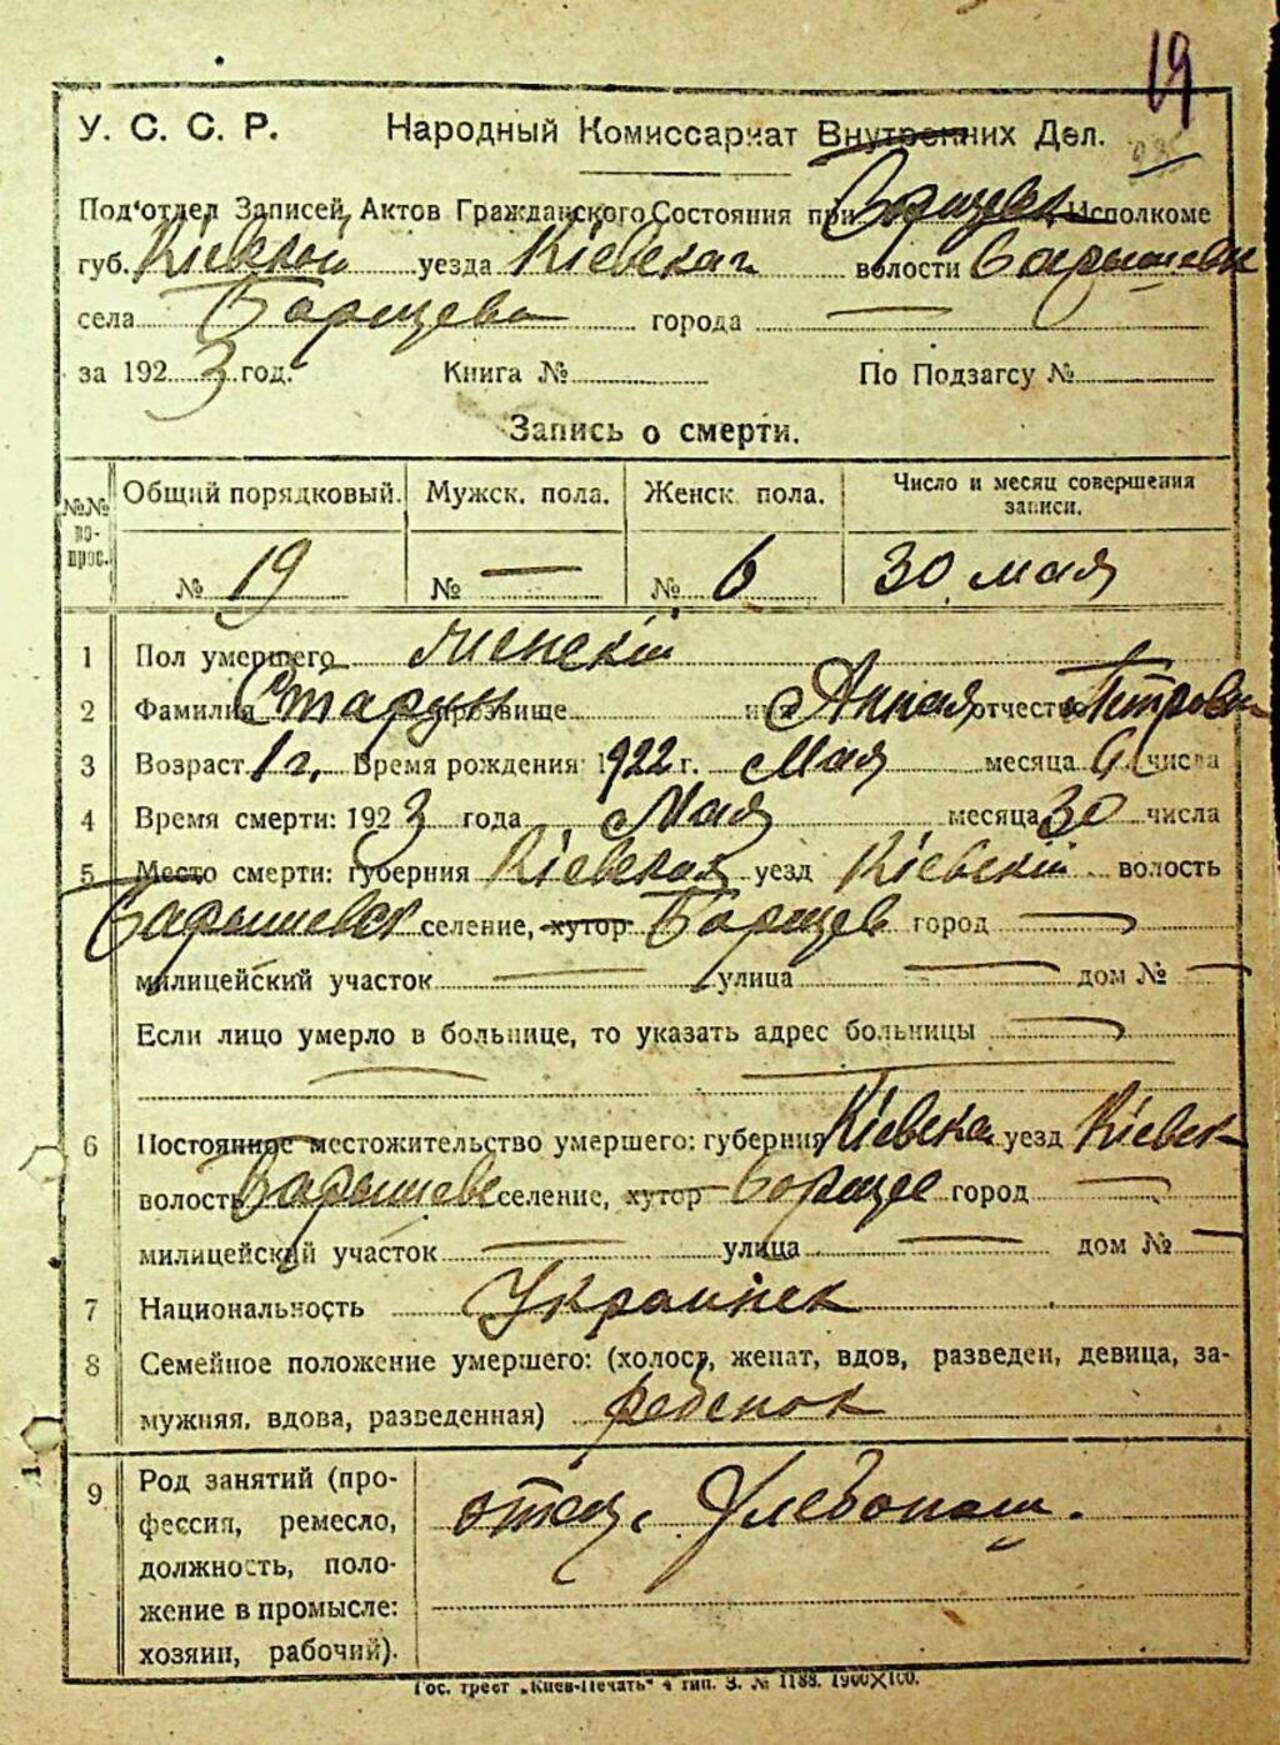 19
У. С. С. Р. Народный Комиссариат Внутренних Дел.
Под'отдел Записей Актов Гражданского Состояния при Борщев. Исполкоме
губ. Кіевской уезда Кіевскаг волости Барышевск
села Борщева города —
за 1923 год. Книга № По Подзагсу №
Запись о смерти.
№№ во-прос. Общий порядковый. Мужск. пола. Женск. пола. Число и месяц совершения записи.
№ 19 № — № 6 30 мая
1 Пол умершего женскій
2 Фамилия Стадун прозвище имя Анная отчество Петровн
3 Возраст 1 г. Время рождения: 1922 г. Мая месяца 9 числа
4 Время смерти: 1923 года Мая месяца 30 числа
5 Место смерти: губерния Кіевская уезд Кіевскій волость
Барышевск селение, хутор Борщев город —
милицейский участок — улица — дом № —
Если лицо умерло в больнице, то указать адрес больницы —
6 Постоянное местожительство умершего: губерния Кіевска уезд Кіевск
волость Барышев селение, хутор Борщев город —
милицейский участок — улица — дом № —
7 Национальность Украинск
8 Семейное положение умершего: (холост, женат, вдов, разведен, девица, за-
мужняя, вдова, разведенная) ребенок
9 Род занятий (про-
фессия, ремесло,
должность, поло-
жение в промысле:
хозяин, рабочий).
отец. Хлебопаш.
Гос. трест „Киев-Печать" 4 тип. З. № 1188. 1900×100.